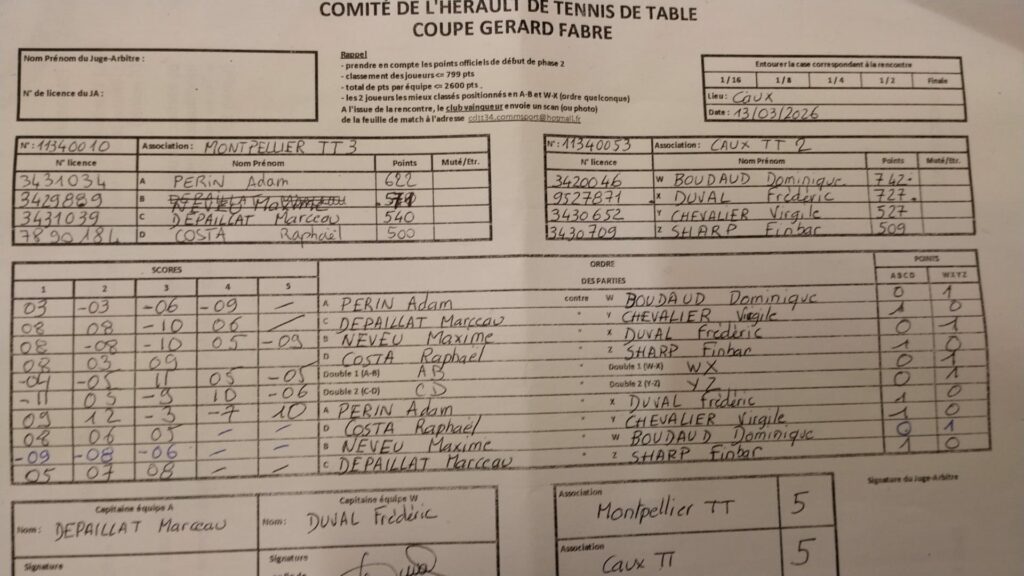 COMITÉ DE L'HERAULT DE TENNIS DE TABLE
COUPE GERARD FABRE
Nom Prénom du Juge-Arbitre :
N° de licence du JA :
Rappel
- prendre en compte les points officiels de début de phase 2
- classement des joueurs <= 799 pts
- total de pts par équipe <= 2600 pts.
- les 2 joueurs les mieux classés positionnés en A-B et W-X (ordre quelconque)
A l'issue de la rencontre, le club vainqueur envoie un scan (ou photo)
de la feuille de match à l'adresse cdtt34.commsport@hotmail.fr
Entourer la case correspondant à la rencontre
1/16 1/8 1/4 1/2 Finale
Lieu : Caux
Date : 13/03/2026
N° : 11340010 Association : MONTPELLIER TT 3
N° licence Nom Prénom Points Muté/Etr.
3431034 A PERIN Adam 622
3429889 B NEVEU Maxime
3431039 C DEPAILLAT Marceau 540
7890184 D COSTA Raphaël 500
N° : 11340053 Association : CAUX TT 2
N° licence Nom Prénom Points Muté/Etr.
3420046 W BOUDAUD Dominique 742
9527871 X DUVAL Frédéric 727
3430652 Y CHEVALIER Virgile 527
3430709 Z SHARP Finbar 509
SCORES ORDRE DES PARTIES POINTS
1 2 3 4 5 ABCD WXYZ
03 -03 -06 -09 / A PERIN Adam contre W BOUDAUD Dominique 0 1
08 08 -10 06 / C DEPAILLAT Marceau " Y CHEVALIER Virgile 1 0
08 -08 -10 05 -09 B NEVEU Maxime " X DUVAL Frédéric 0 1
08 03 09 D COSTA Raphaël " Z SHARP Finbar 1 0
-04 -05 11 05 -05 Double 1 (A-B) AB " Double 1 (W-X) WX 0 1
-11 05 -9 10 -06 Double 2 (C-D) CD " Double 2 (Y-Z) YZ 0 1
09 12 -3 -7 10 A PERIN Adam " X DUVAL Frédéric 1 0
08 06 05 - - D COSTA Raphaël " Y CHEVALIER Virgile 1 0
-09 -08 -06 - - B NEVEU Maxime " W BOUDAUD Dominique 0 1
05 07 08 - - C DEPAILLAT Marceau " Z SHARP Finbar 1 0
Capitaine équipe A
Nom : DEPAILLAT Marceau
Signature
Capitaine équipe W
Nom : DUVAL Frédéric
Signature
Association
Montpellier TT 5
Association
Caux TT 5
Signature du Juge-Arbitre